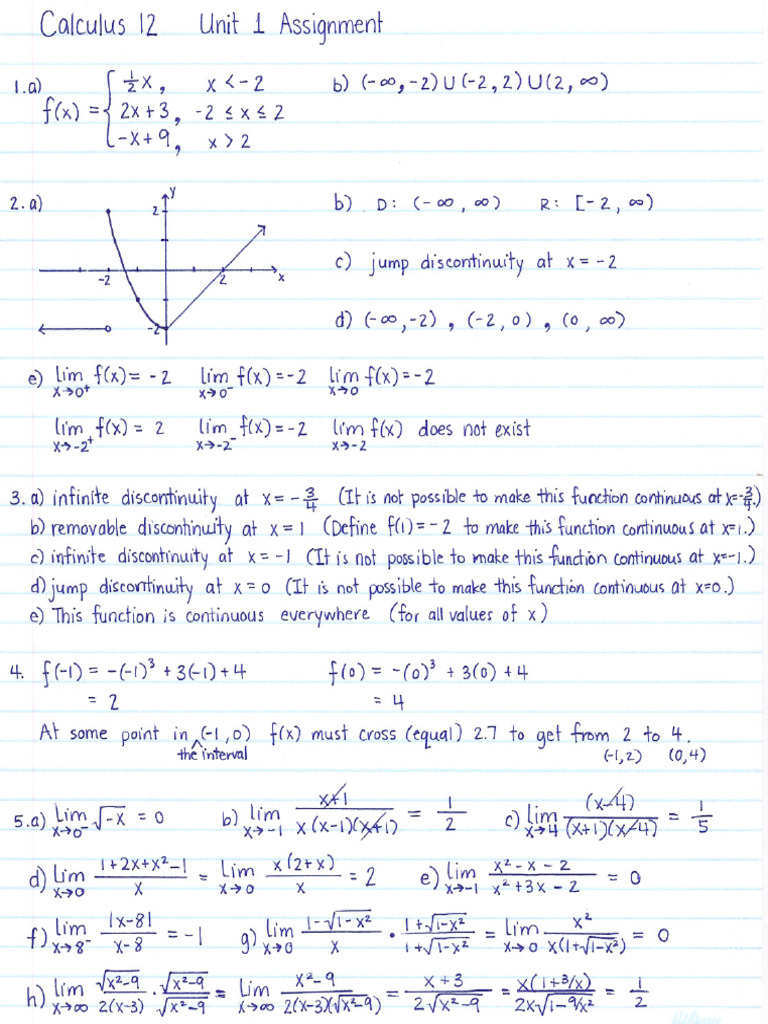 Calculus 12 Unit 1 Assignment
1. a) f(x) = { ½x, x < -2
2x + 3, -2 ≤ x ≤ 2
-x + 9, x > 2
b) (-∞, -2) U (-2, 2) U (2, ∞)
2. a)
y
2
-2 2 x
-2
b) D: (-∞, ∞) R: [-2, ∞)
c) jump discontinuity at x = -2
d) (-∞, -2), (-2, 0), (0, ∞)
e) lim x→0⁺ f(x) = -2 lim x→0⁻ f(x) = -2 lim x→0 f(x) = -2
lim x→-2⁺ f(x) = 2 lim x→-2⁻ f(x) = -2 lim x→-2 f(x) does not exist
3. a) infinite discontinuity at x = -3/4 (It is not possible to make this function continuous at x=-3/4.)
b) removable discontinuity at x = 1 (Define f(1) = -2 to make this function continuous at x=1.)
c) infinite discontinuity at x = -1 (It is not possible to make this function continuous at x=-1.)
d) jump discontinuity at x = 0 (It is not possible to make this function continuous at x=0.)
e) This function is continuous everywhere (for all values of x)
4. f(-1) = -(-1)³ + 3(-1) + 4 f(0) = -(0)³ + 3(0) + 4
= 2 = 4
At some point in the interval (-1, 0) f(x) must cross (equal) 2.7 to get from 2 to 4.
(-1,2) (0,4)
5. a) lim x→0⁻ √-x = 0 b) lim x→-1 x+1 / x(x-1)(x+1) = 1/2 c) lim x→4 (x-4) / (x+1)(x-4) = 1/5
d) lim x→0 1+2x+x²-1 / x = lim x→0 x(2+x) / x = 2 e) lim x→-1 x²-x-2 / x²+3x-2 = 0
f) lim x→8⁻ |x-8| / x-8 = -1 g) lim x→0 1-√1-x² / x · 1+√1-x² / 1+√1-x² = lim x→0 x² / x(1+√1-x²) = 0
h) lim x→∞ √x²-9 / 2(x-3) · √x²-9 / √x²-9 = lim x→∞ x²-9 / 2(x-3)(√x²-9) = x+3 / 2√x²-9 = x(1+3/x) / 2x√1-9/x² = 1/2